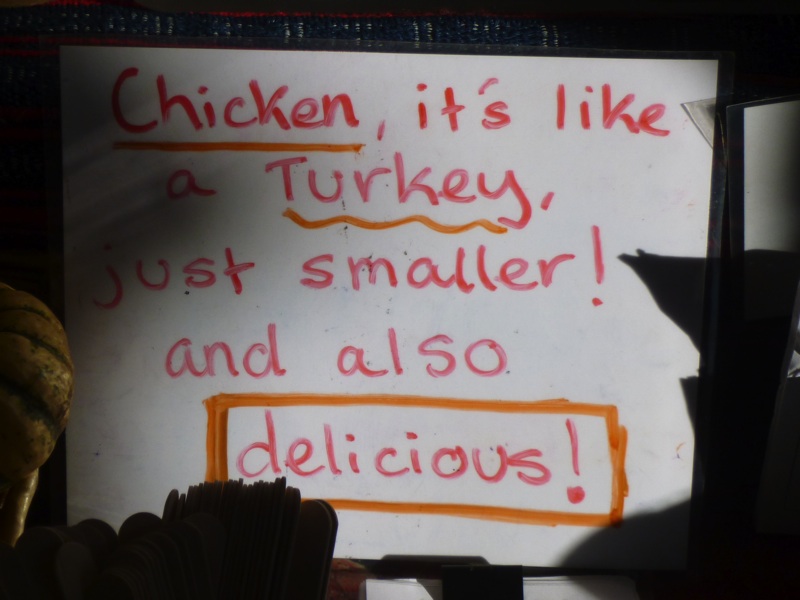 Chicken, it's like
a Turkey,
just smaller!
and also
delicious!